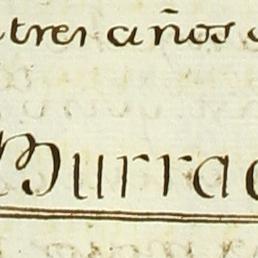 tres años
Murra